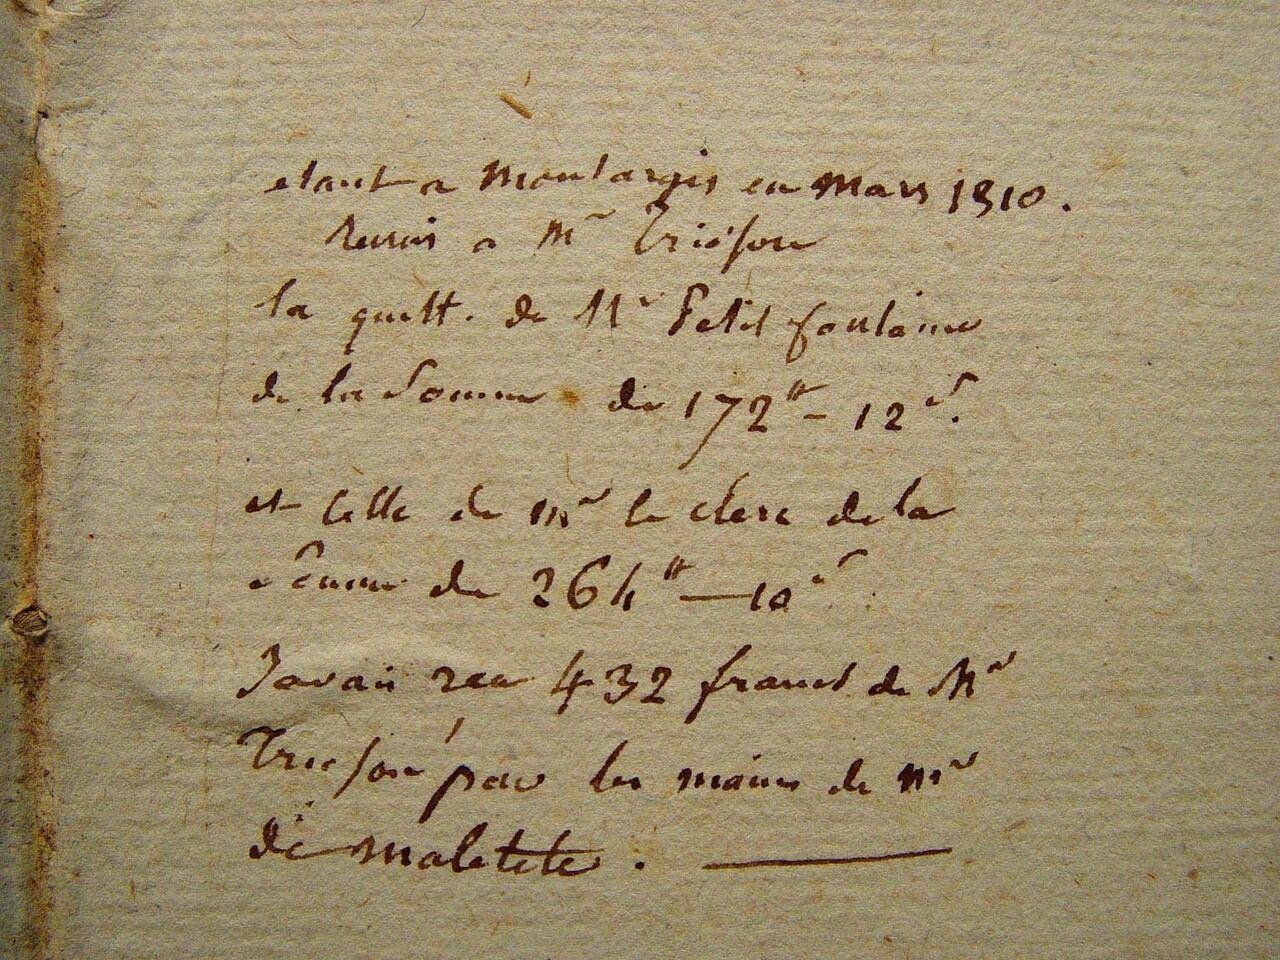 etant a Montargis en mars 1810.
Remis a Mr Triéson
la quitt. de Mr Petit fontaine
de la Somme de 172tt - 12 s.
et celle de mr le clerc de la
Somme de 264tt — 10 s
J'avais recu 432 francs de Mr
Trieson par les mains de mr
de maletete. —